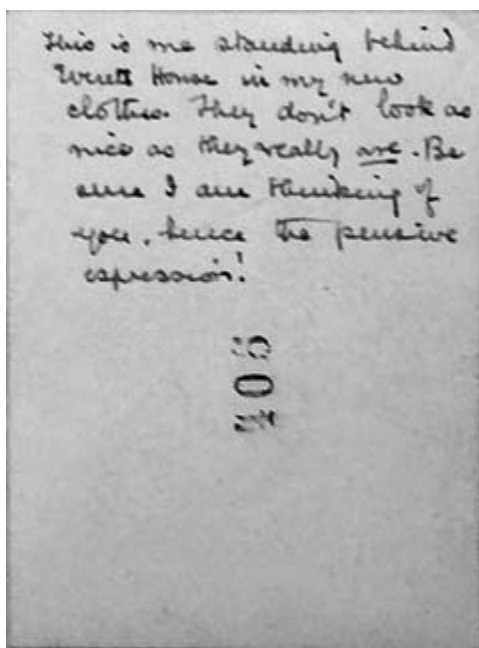 This is me standing behind
Everett House in my new
clothes. They don't look as
nice as they really are. Be
sure I am thinking of
you, hence the pensive
expression!
205